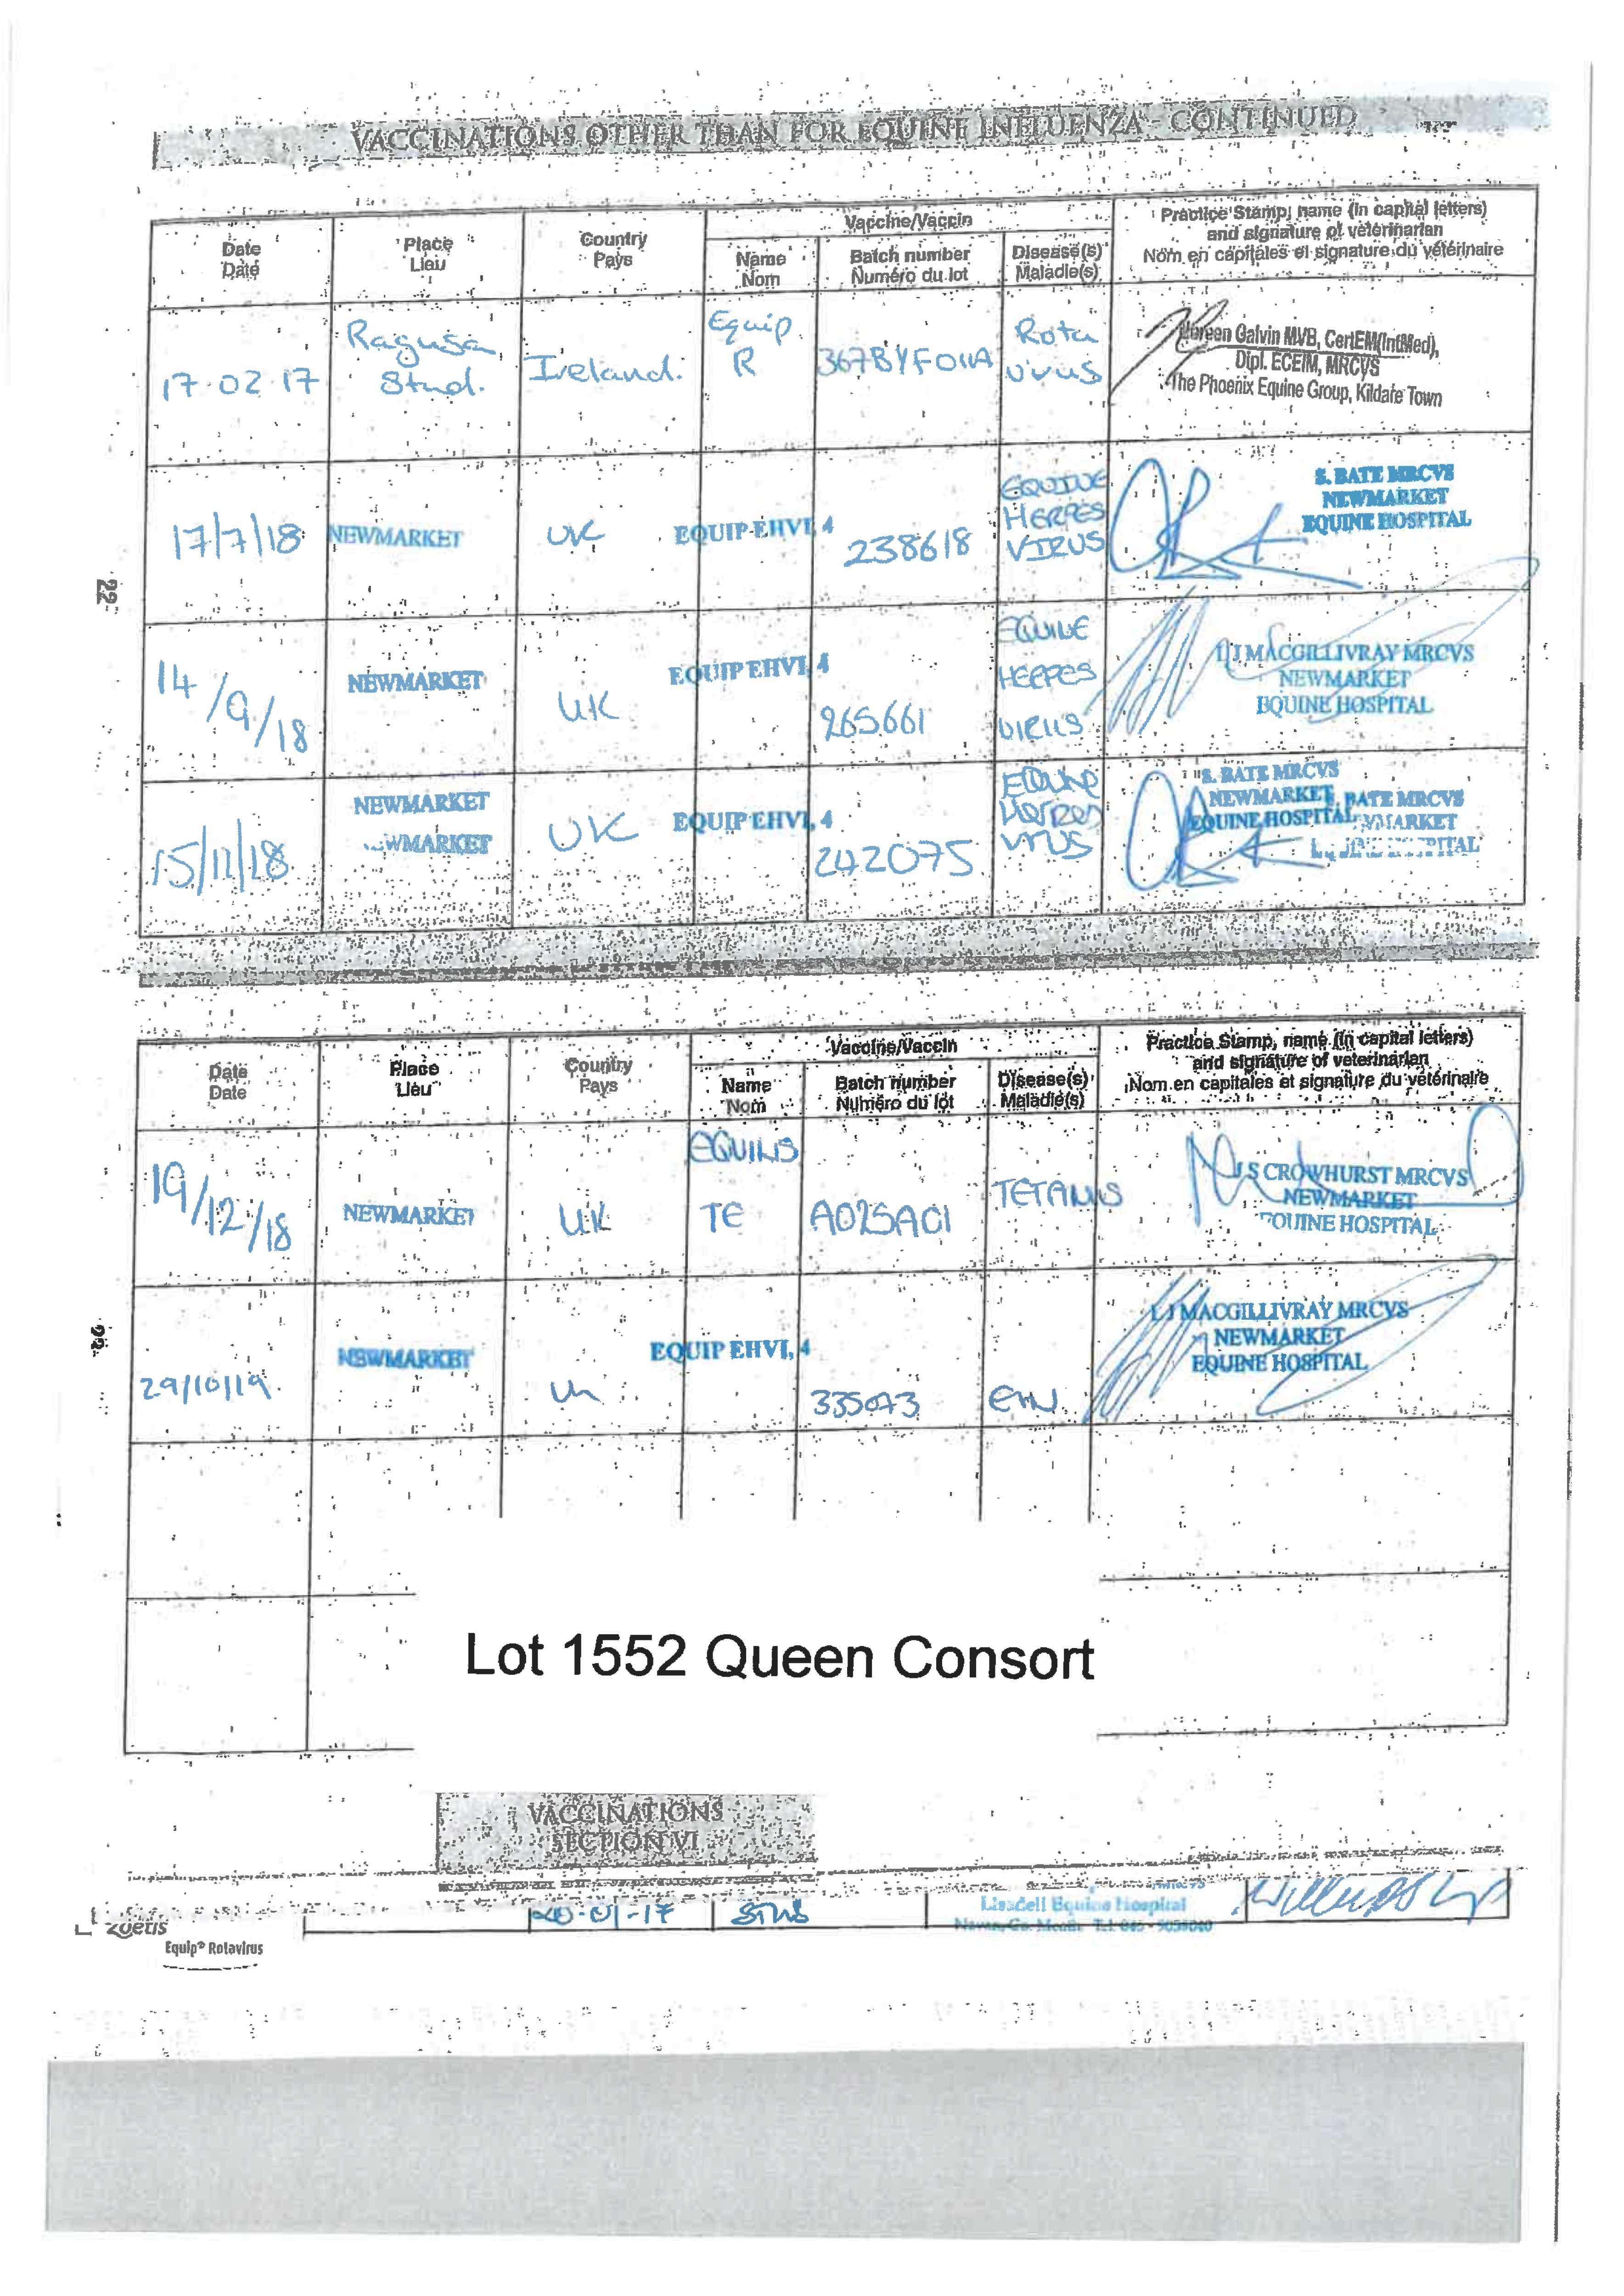 VACCINATIONS OTHER THAN FOR EQUINE INFLUENZA - CONTINUED
Date
Date
Place
Lieu
Country
Pays
Vaccine/Vaccin
Name
Nom
Batch number
Numéro du lot
Disease(s)
Maladie(s)
Practice Stamp, name (in capital letters)
and signature of veterinarian
Nom en capitales et signature du vétérinaire
17.02.17
Ragusa
Stud.
Ireland.
Equip
R
367BYF01A
Rota
virus
Noreen Galvin MVB, CertEM(IntMed),
Dipl. ECEIM, MRCVS
The Phoenix Equine Group, Kildare Town
17/7/18
NEWMARKET
UK
EQUIP EHV1, 4
238618
EQUINE
HERPES
VIRUS
S. BATE MRCVS
NEWMARKET
EQUINE HOSPITAL
22
14/9/18
NEWMARKET
UK
EQUIP EHV1, 4
265661
EQUINE
HERPES
VIRUS
LJ MACGILLIVRAY MRCVS
NEWMARKET
EQUINE HOSPITAL
15/11/18
NEWMARKET
WMARKET
UK
EQUIP EHV1, 4
242075
Equine
Herpes
virus
S. BATE MRCVS
NEWMARKET
EQUINE HOSPITAL
BATE MRCVS
MARKET
Date
Date
Place
Lieu
Country
Pays
Vaccine/Vaccin
Name
Nom
Batch number
Numéro du lot
Disease(s)
Maladie(s)
Practice Stamp, name (in capital letters)
and signature of veterinarian
Nom en capitales et signature du vétérinaire
19/12/18
NEWMARKET
UK
EQUILIS
TE
A025AC1
TETANUS
JS CROWHURST MRCVS
NEWMARKET
EQUINE HOSPITAL
29/10/19
NEWMARKET
UK
EQUIP EHV1, 4
335073
EHV
LJ MACGILLIVRAY MRCVS
NEWMARKET
EQUINE HOSPITAL
Lot 1552 Queen Consort
VACCINATIONS
SECTION VI
zoetis
Equip® Rotavirus
20-01-17
Lisadell Equine Hospital